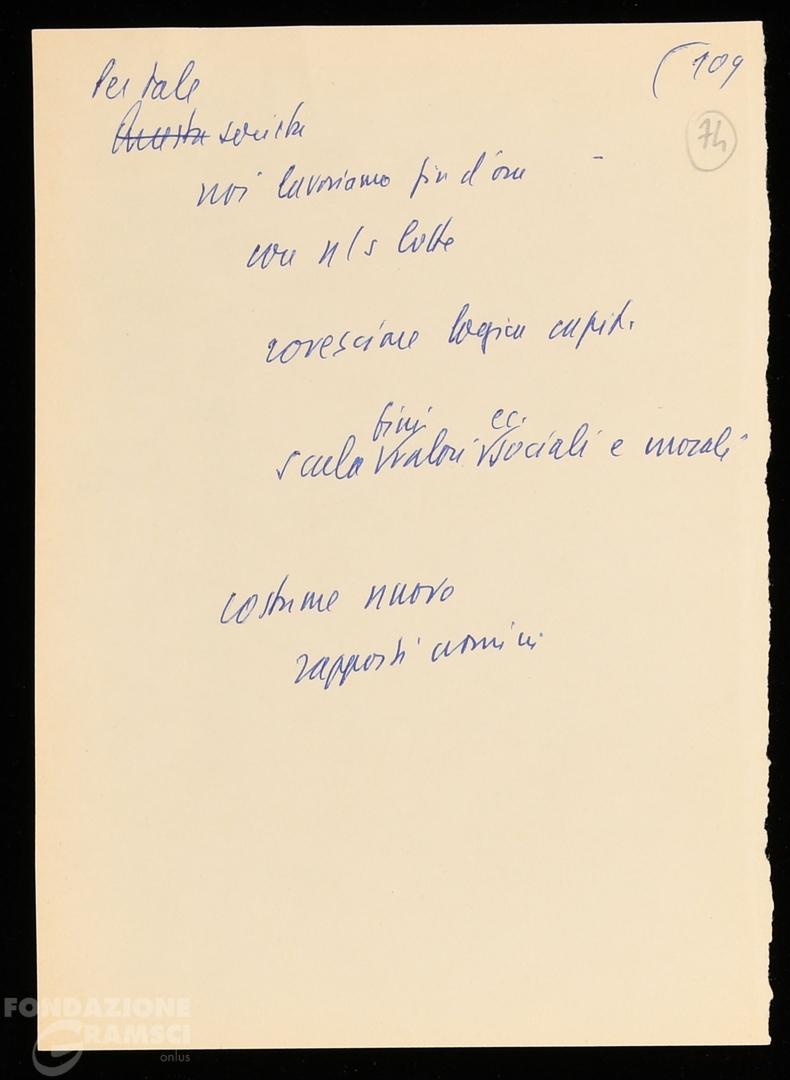 Per tale
(109
Questa società
74
noi lavoriamo fin d'ora –
con n/s lotte
rovesciare logica capit.
fini ec.
scala valori sociali e morali
costume nuovo
rapporti uomini
FONDAZIONE
GRAMSCI
onlus